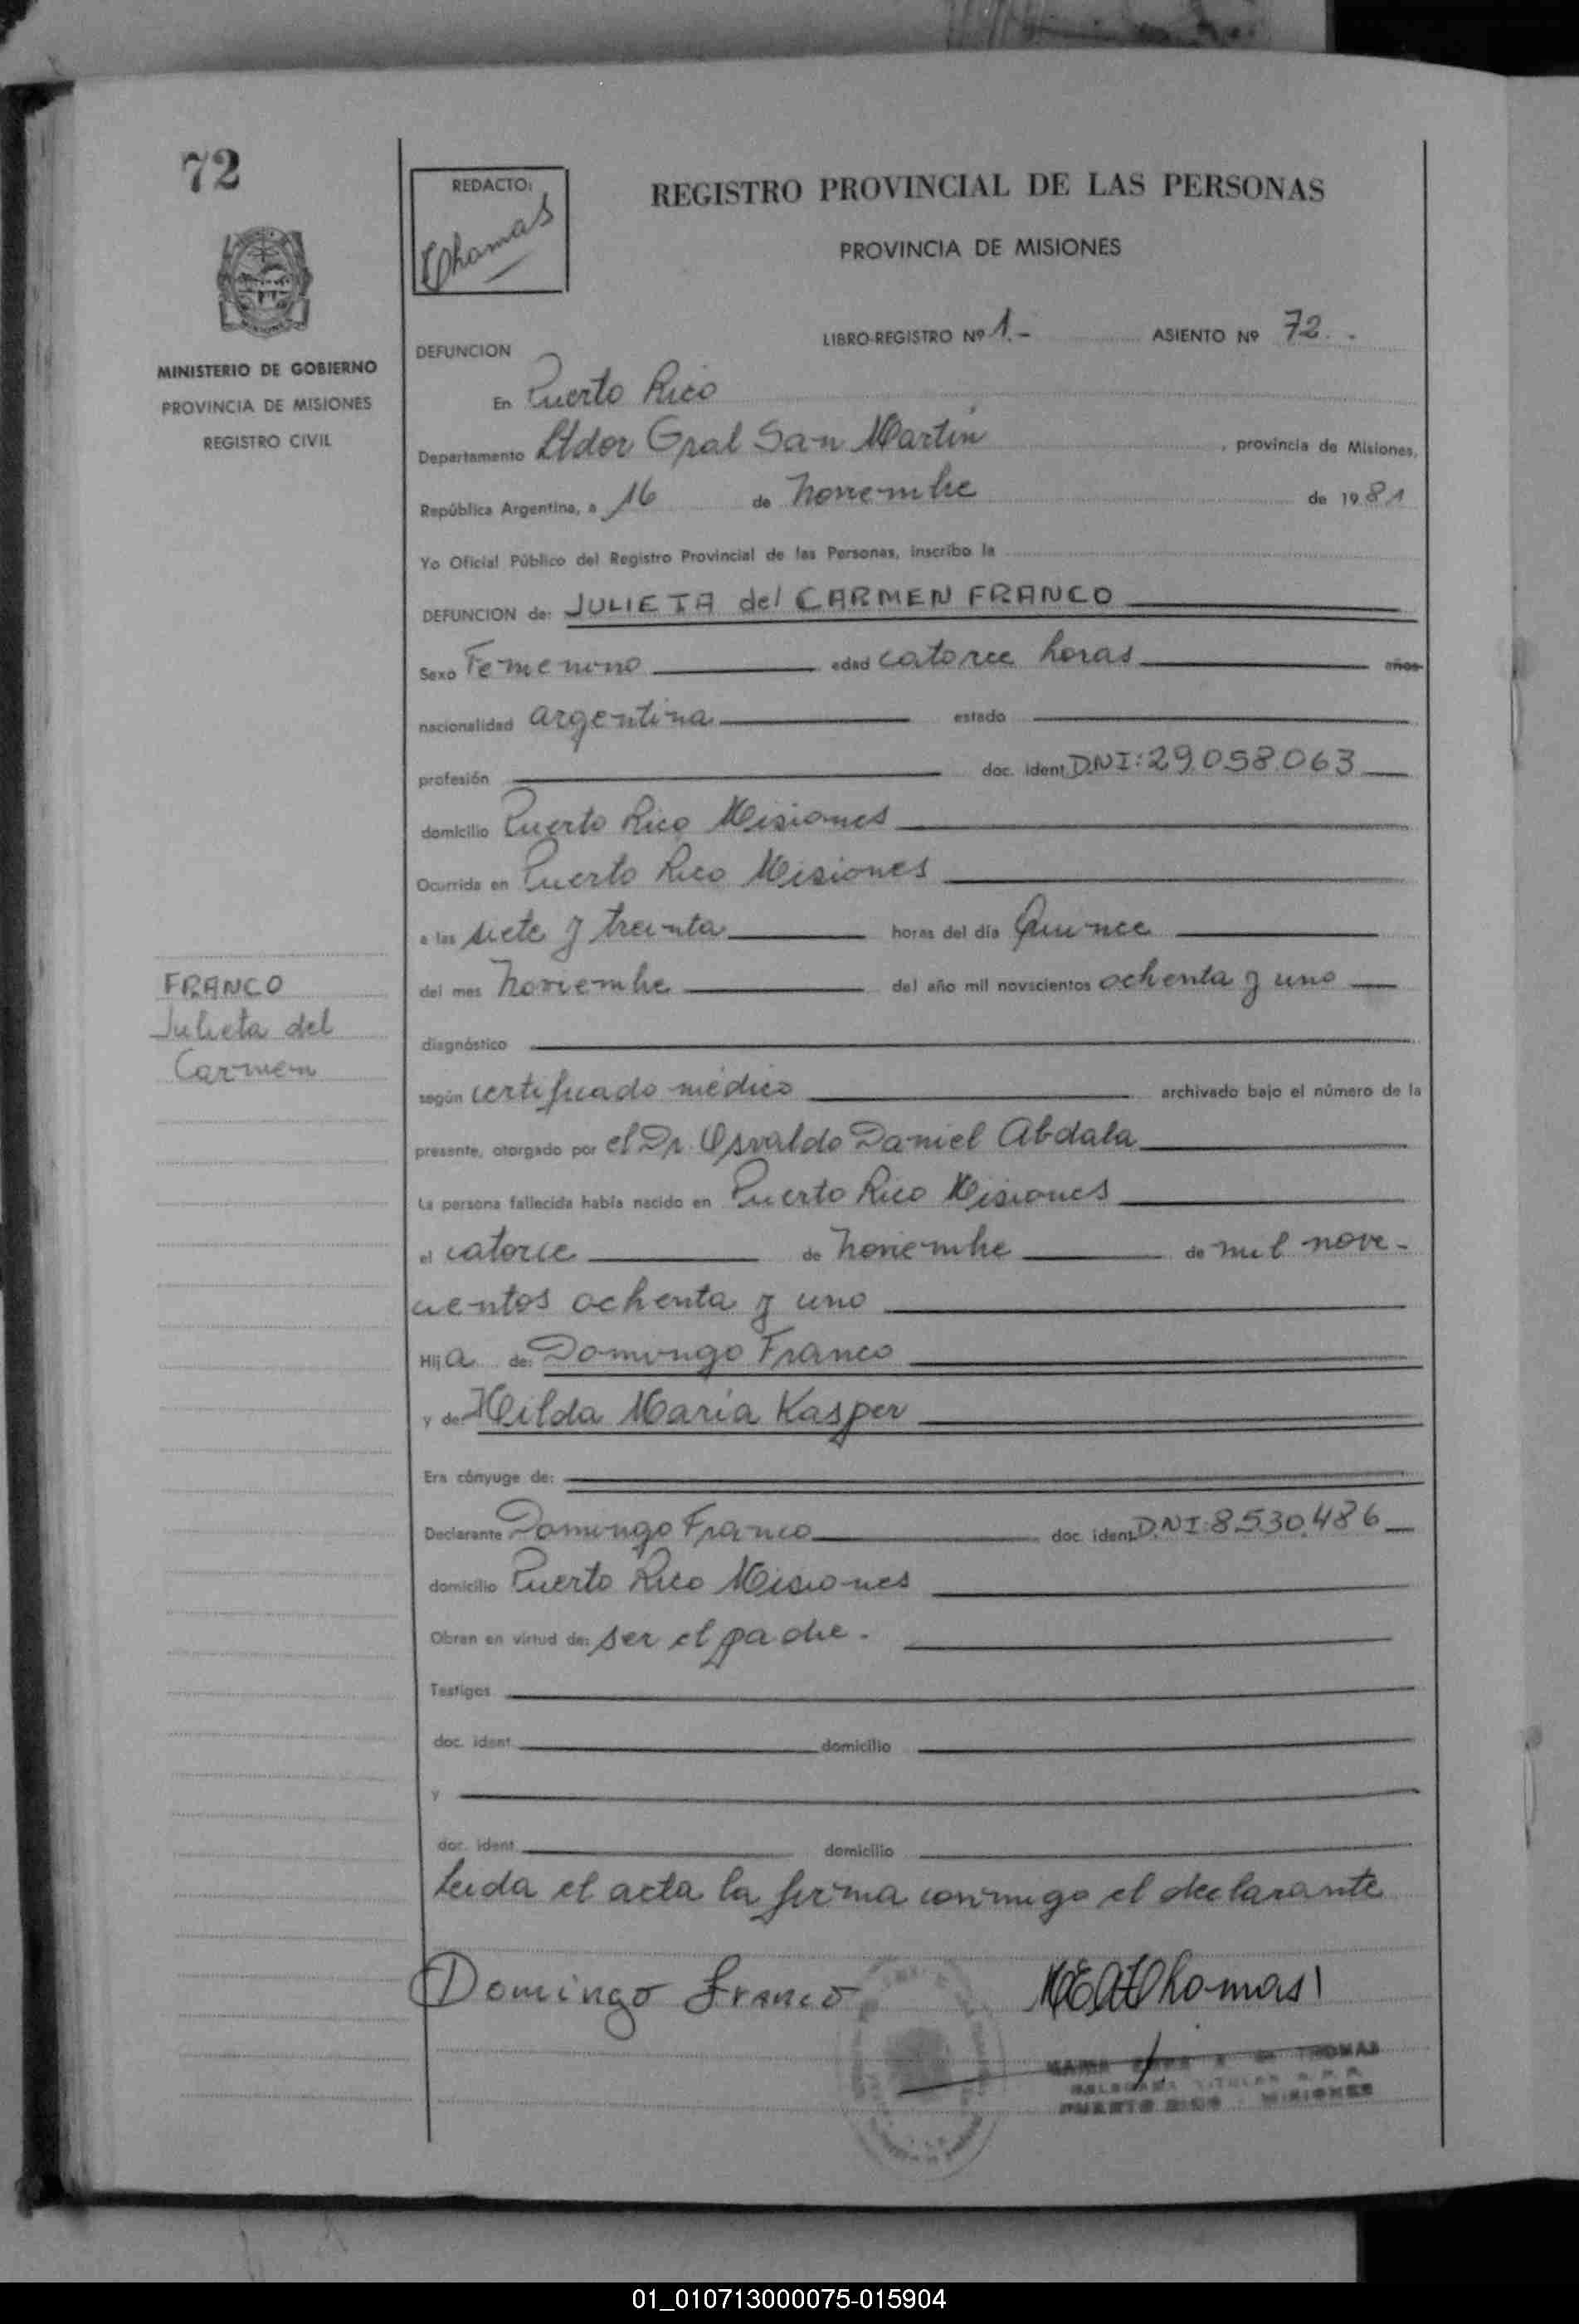 72
REDACTO:
Thomas
REGISTRO PROVINCIAL DE LAS PERSONAS
PROVINCIA DE MISIONES
MINISTERIO DE GOBIERNO
PROVINCIA DE MISIONES
REGISTRO CIVIL
LIBRO-REGISTRO Nº 1.- ASIENTO Nº 72.
DEFUNCION
En Puerto Rico
Departamento Ltdor Gral San Martín, provincia de Misiones,
República Argentina, a 16 de noviembre de 1981
Yo Oficial Público del Registro Provincial de las Personas, inscribo la
DEFUNCION de: JULIETA del CARMEN FRANCO
Sexo Femenino edad catorce horas años
nacionalidad argentina estado
profesión doc. ident. DNI: 29.058.063
domicilio Puerto Rico Misiones
Ocurrida en Puerto Rico Misiones
a las siete y treinta horas del día Quince
del mes noviembre del año mil novecientos ochenta y uno
FRANCO
Julieta del
Carmen
diagnóstico
según certificado médico archivado bajo el número de la
presente, otorgado por el Dr. Osvaldo Daniel Abdala
La persona fallecida había nacido en Puerto Rico Misiones
el catorce de noviembre de mil nove-
cientos ochenta y uno
Hija de: Domingo Franco
y de: Hilda María Kasper
Era cónyuge de:
Declarante Domingo Franco doc. ident. D.N.I: 8.530.486
domicilio Puerto Rico Misiones
Obran en virtud de: ser el padre.
Testigos
doc. ident. domicilio
y
doc. ident. domicilio
Leida el acta la firma conmigo el declarante
Domingo Franco
Thomas
THOMAS
PUERTO RICO - MISIONES
01_010713000075-015904